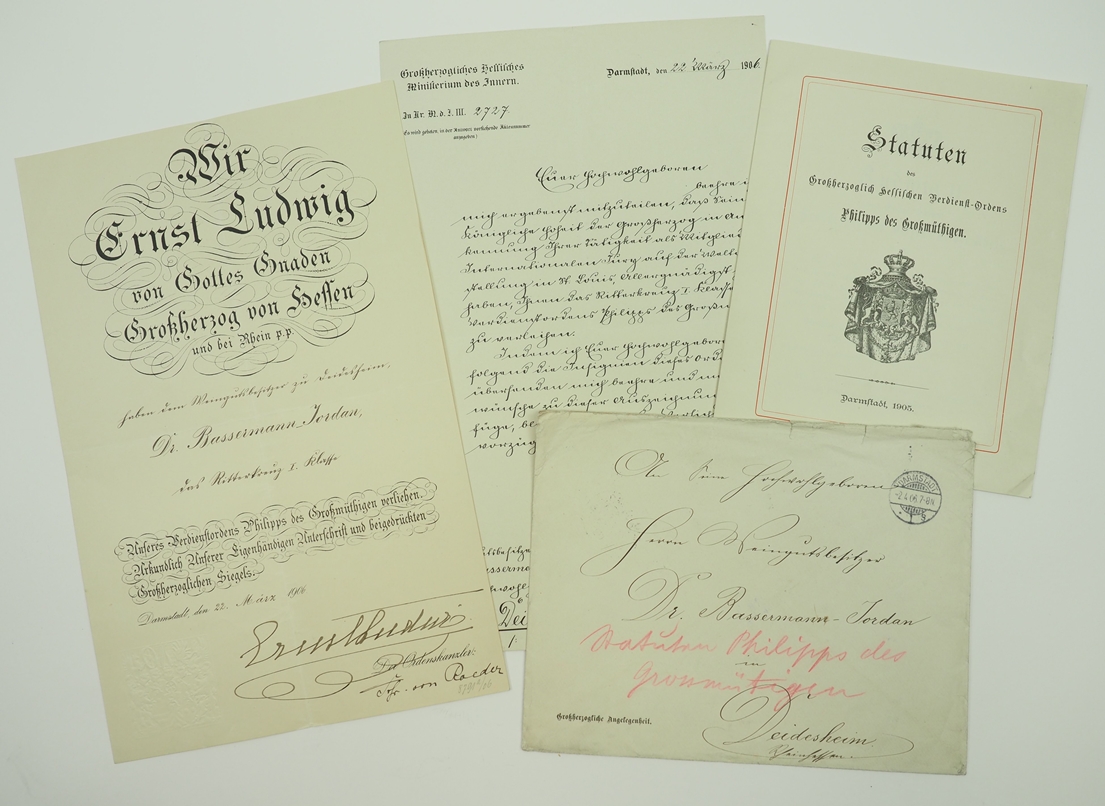 Wir
Ernst Ludwig
von Gottes Gnaden
Großherzog von Hessen
und bei Rhein p.p.
haben dem Weingutsbesitzer zu Deidesheim,
Dr. Bassermann-Jordan,
das Ritterkreuz I. Klasse
Unseres Verdienstordens Philipps des Großmüthigen verliehen.
Urkundlich Unserer Eigenhändigen Unterschrift und beigedrückten
Großherzoglichen Siegels.
Darmstadt, den 22. März 1906
Ernst Ludwig
Der Ordenskanzler:
Frhr. von Roeder
Großherzogliches Hessisches
Ministerium des Innern.
Darmstadt, den 22. März 1906.
Zu Nr. M. d. I. III. 2727.
(Es wird gebeten, in der Antwort vorstehende Aktennummer
anzugeben)
Euer Hochwohlgeboren
beehre
mich ergebenst mitzuteilen, daß Sein
Königliche Hoheit der Großherzog in An
kennung Ihrer Tätigkeit als Mitglied
Internationalen Jury auf der Welt
stellung in St. Louis, Allergnädigst
haben, Ihnen das Ritterkreuz I. Klasse
Verdienstordens Philipps des Großm
zu verleihen.
Indem ich Euer Hochwohlgebor
folgend die Insignien dieses Ord
übersenden mich beehre und
wünsche zu dieser Auszeichnung
füge, be
vorzüg
Dei
Statuten
des
Großherzoglich Hessischen Verdienst-Ordens
Philipps des Großmüthigen.
Darmstadt, 1905.
DARMSTADT
-2.4.06.7-8N.
An Sein Hochwohlgeboren
Herrn Weingutsbesitzer
Dr. Bassermann-Jordan
Statuten Philipps des
in
Gronmütigen
Deidesheim.
Großherzogliche Angelegenheit.